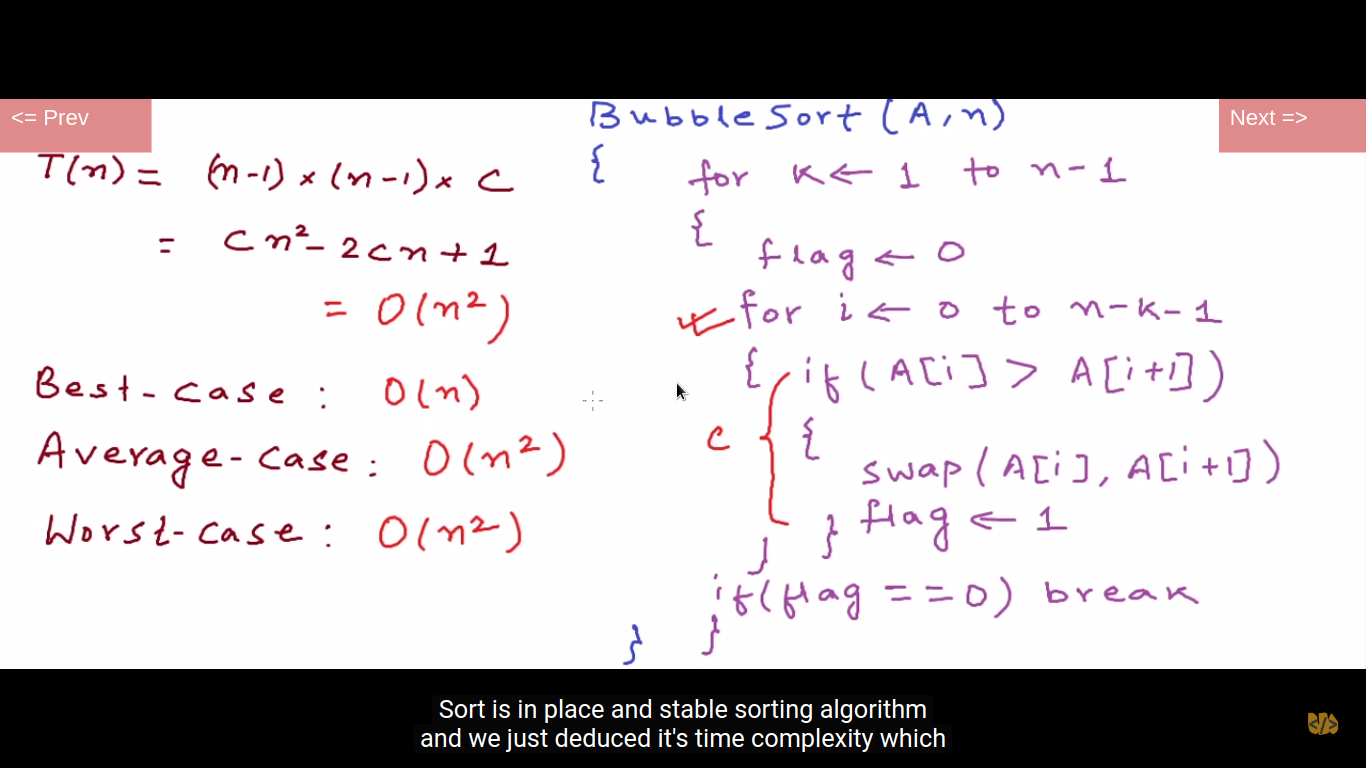 <= Prev
Next =>
T(n) = (n-1) × (n-1) × C
= Cn² - 2cn + 1
= O(n²)
Best-case : O(n)
Average-case : O(n²)
Worst-case : O(n²)
BubbleSort(A,n)
{
for K ← 1 to n-1
{
flag ← 0
for i ← 0 to n-K-1
{ if (A[i] > A[i+1])
C {
swap(A[i], A[i+1])
} flag ← 1
}
if(flag == 0) break
}
}
Sort is in place and stable sorting algorithm
and we just deduced it's time complexity which